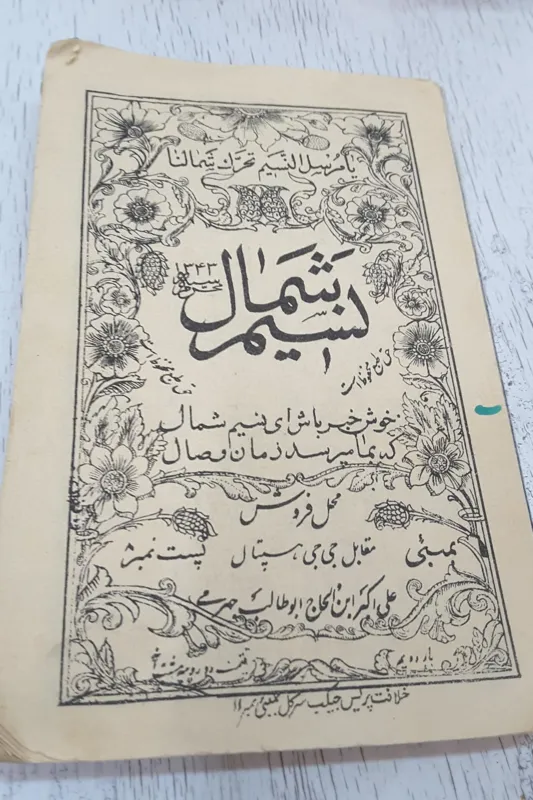 یا مرسل النسیم تحرک شمالنا
نسیم شمال
۱۳۴۳
حق طبع محفوظ است
خوش خبر باش ای نسیم شمال
که بما میرسد زمان وصال
محل فروش
بمبئی مقابل جی جی هسپتال پست نمبر ۸
علی اکبر ابن الحاج ابوطالب جهرمی
بار دویم
خلافت پریس جیکب سرکل بمبئی نمبر ۱۱